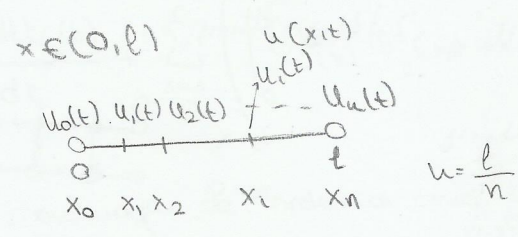 x ∈ (0, l)
u(x,t)
u_i(t)
u_0(t) u_1(t) u_2(t) - - - u_n(t)
0 l
x_0 x_1 x_2 x_i x_n
h = l/n